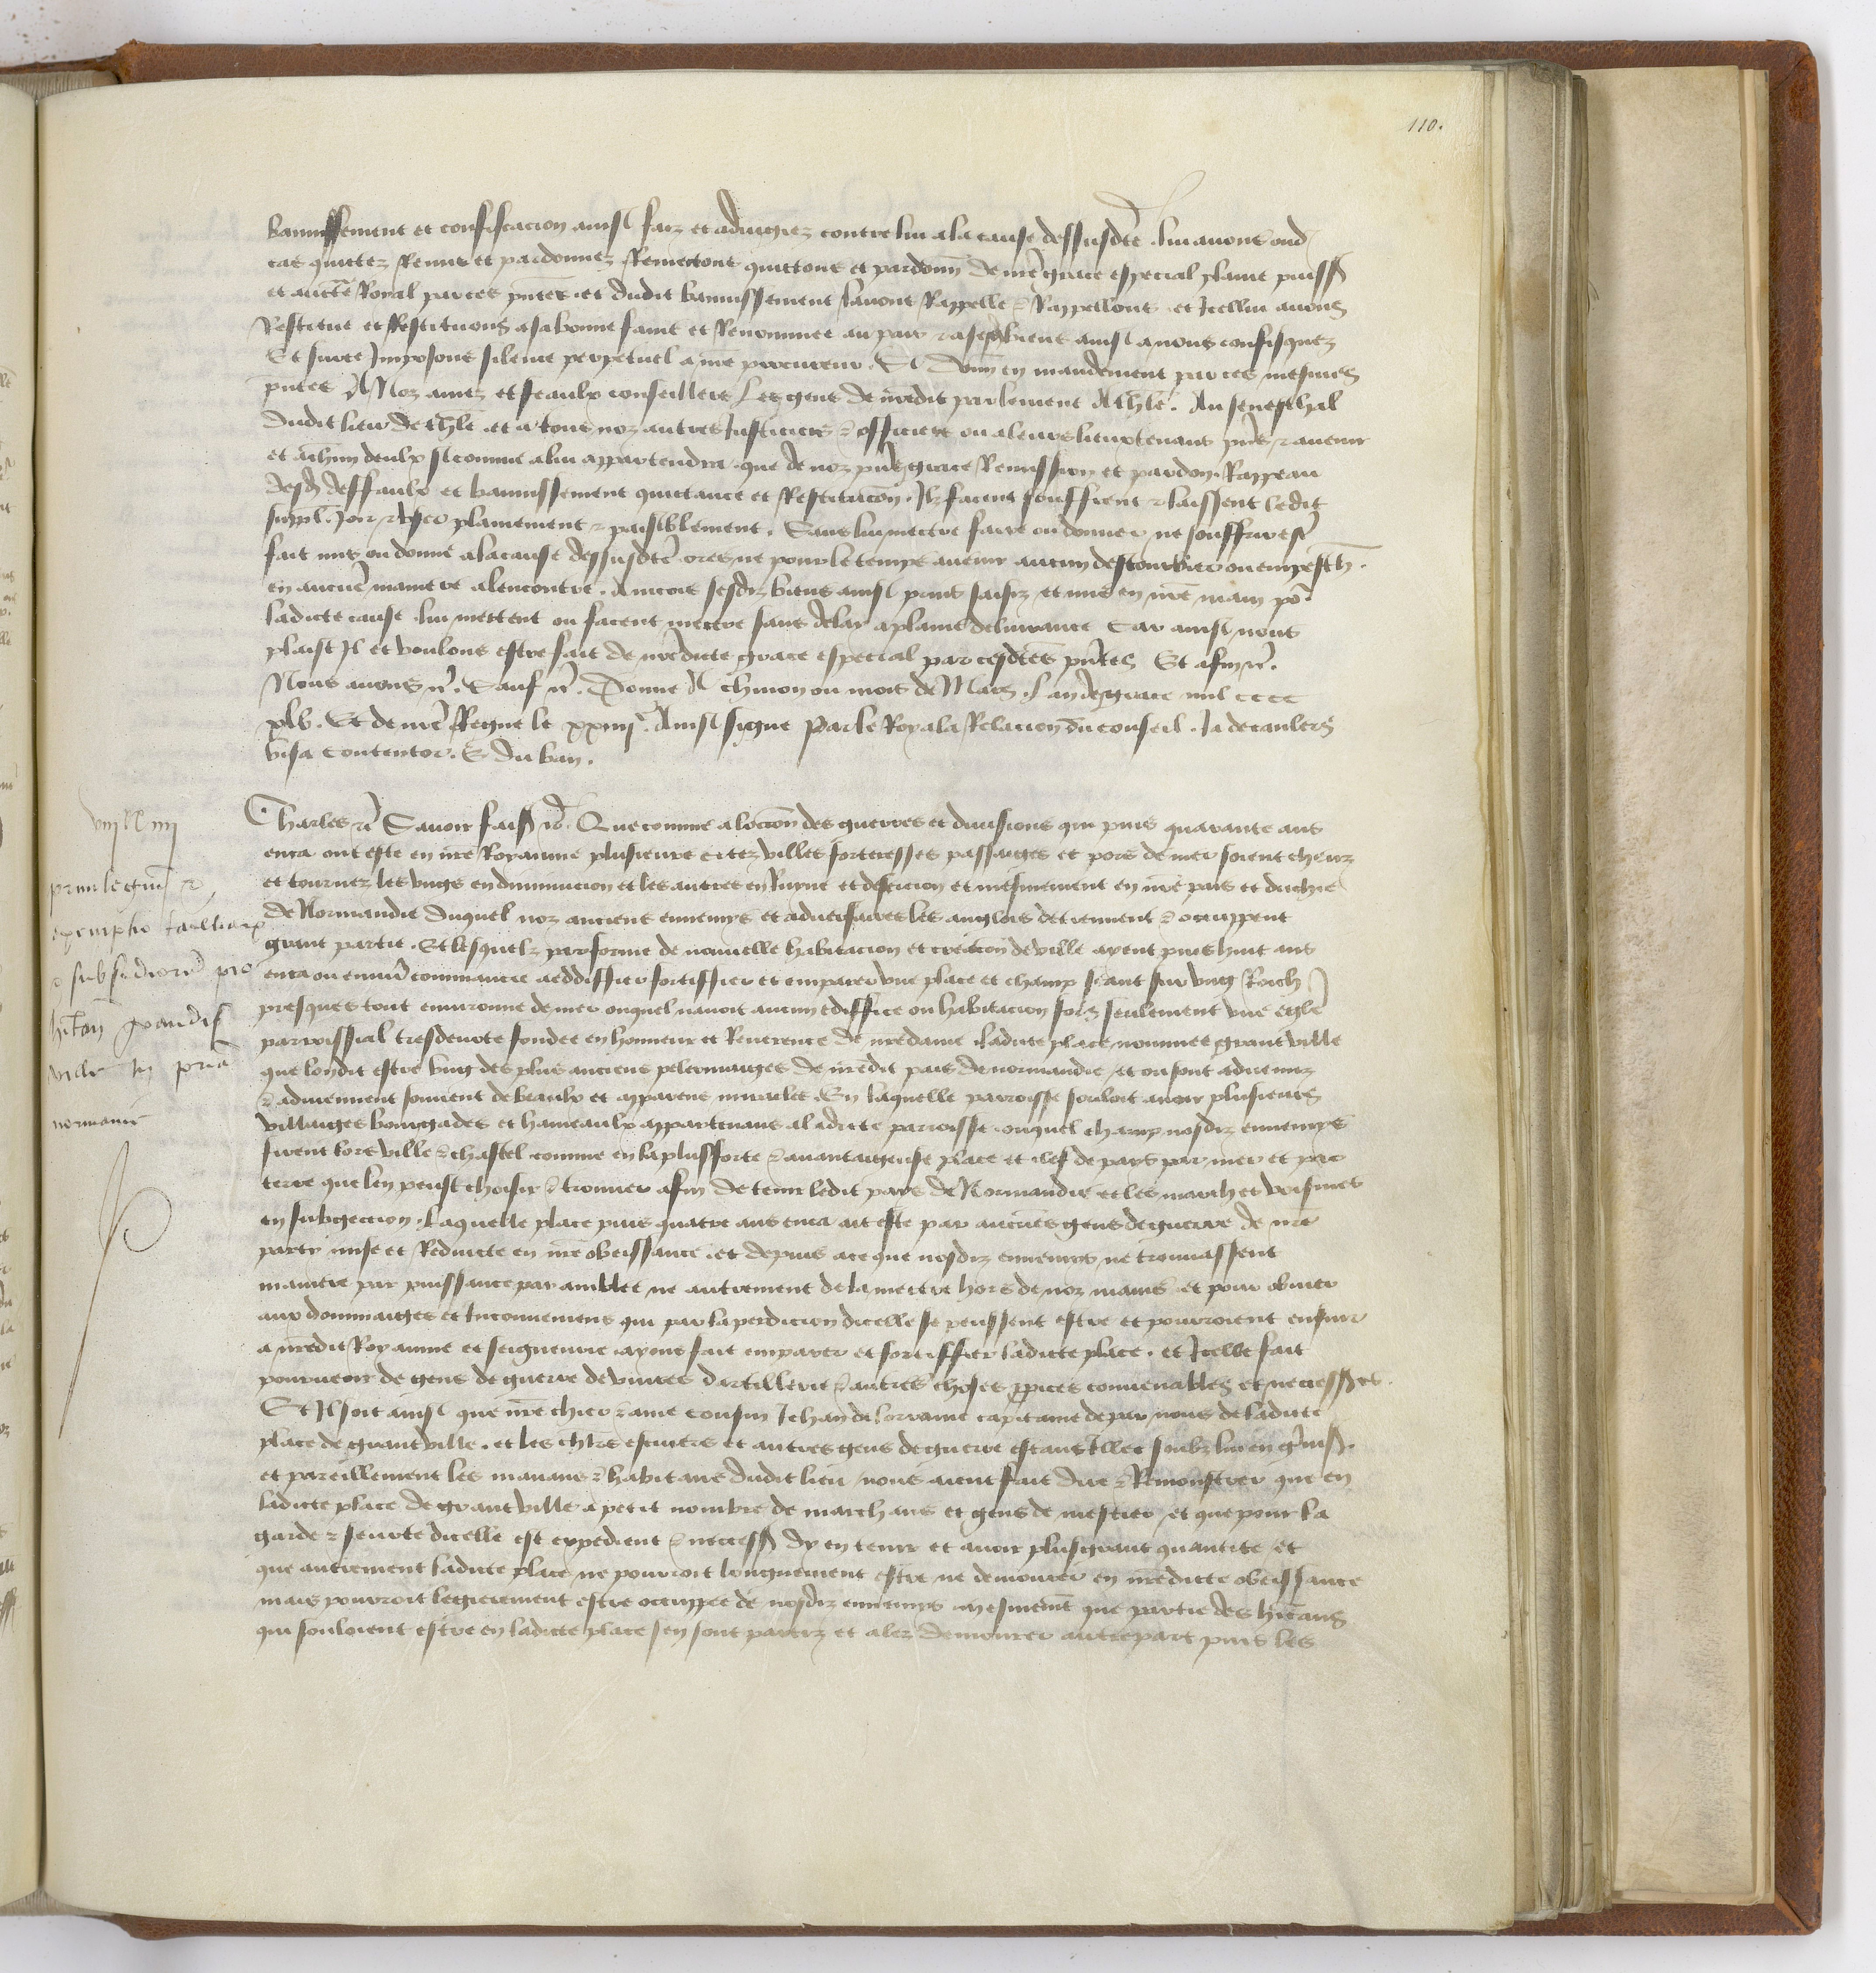 110.
bannissement et confiscacion ainsi faiz et adiugiez contre lui a la cause dessusdicte lui auons oud
cas quictez Remis et pardonnez Remectons quictons et pardonn de nre grace especial plaine puiss
et aucte Royal par ces pntes et dudit bannissement lauons Rappelle & Rappellons et Icellui auons
Restitue et Restituons a sa bonne fame et Renommee au pais & a ses biens ainsi a nous confisquez
Et surce Imposons silence perpetuel a nre procureur. Si donn en mandement par ces mesmes
pntes A Noz amez et feaulx conseillers Les gens de nredit parlement A Thle. Au seneschal
dudit lieu de Thle et a tous noz autres Justiciers & officiers ou a leurs lieuxtenans pns & auenir
et a chun deulx si comme a lui appartendra que de noz pns grace Remission et pardon Rappeau
desd deffaulx et bannissement quictance et Restitucon. Ilz facent souffrent & laissent ledit
suppl. Joir & user plainement & paisiblement. Sans lui mectre faire ou donner ne souffrir estre
fait mis ou donne a la cause dessusdte ores ne pour le temps auenir aucun destourbier ou empesch.
en aucune maniere alencontre. Aincois sesdiz biens ainsi prins saisiz et mis en nre main po.
ladicte cause lui mettent ou facent mectre sans delay a plaine deliurance Car ainsi nous
plaist Il et voulons estre fait de nredicte grace especial par cesdtes pntes Et afin &c.
Nous auons &c. Sauf &c. Donne A Chinon ou mois de Mars. Lan de grace mil cccc
xlv. Et de nre Regne le xxiiij. Ainsi signe Par le Roy a la Relacion du conseil. Ja de caulers
visa Contentor. E du ban.
Charles &c Sauoir fais &c. Que comme a loccon des guerres et diuisions qui puis quarante ans
enca ont este en nre Royaume plusieurs citez villes forteresses passaiges et pors de mer soient cheuz
et tournez les vngs en diminucion et les autres en Ruyne et desercion et mesmement en nre pais et duchie
de Normandie duquel noz anciens ennemys et aduersaires les anglois detiennent & occuppent
grant partie. Et lesquelz par forme de nouuelle habitacion et creacon de ville ayent puis huit ans
enca ou enuiron commancie a eddiffier fortiffier et emparer vne place et champ seant sur vng Roch
presques tout enuironne de mer ouquel nauoit aucun ediffice ou habitacion fors seulement vne egle
parroissial tresdeuote fondee en honneur et Reuerence de nredame ladicte place nommee grantville
que londit estre vng des plus anciens pelerinaiges de nredit pais de normandie et ou sont aduenuz
& aduiennent souuent de beaulx et apparens miracles. En laquelle parroisse souloit auoir plusieurs
villaiges bourgades et hameaulx appartenans a ladicte parroisse. ouquel champ nosdiz ennemys
firent lors ville & chastel comme en la plus forte & auantaigeuse place et clef de pays par mer et par
terre que len peust choisir & trouuer afin de tenir ledit pays de Normandie et les marches voisines
en subgection. Laquelle place puis quatre ans enca ait este par aucunes gens de guerre de nre
party mise et Reduicte en nre obeissance. et depuis ace que nosdiz ennemys ne trouuassent
maniere par puissance par amblee ne autrement de la mectre hors de noz mains et pour obuier
aux dommaiges et Inconueniens qui par la perdicion dicelle se peussent estre et pourroient ensuir
a nredit Royaume et seigneurie ayons fait emparer et fortiffier ladicte place. et Icelle fait
pourueoir de gens de guerre de viures dartillerie & autres choses ppices conuenables et necessres.
Et Il soit ainsi que nre chier & ame cousin Jehan de lorraine capitaine de par nous de ladicte
place de grantville. et les chlrs escuiers et autres gens de guerre estans Illec soubz lui en gnis.
et pareillement les manans & habitans dudit lieu nous aient fait dire & Remonstrer que en
ladicte place de grantville a petit nombre de marchans et gens de mestier et que pour la
garde & seurte dicelle est expedient & necess dy en tenir et auoir plus grant quantite et
que autrement ladicte place ne pourroit longuement estre ne demourer en nredicte obeissance
mais pourroit legierement estre occuppee de nosdiz ennemys mesmemt que partie des hitans
qui souloient estre en ladicte place sen sont partiz et alez demourer autrepart puis les
priuilegium &
exemptio tailliarum
& subsidiorum pro
hitan grandis
ville in pria
normanie